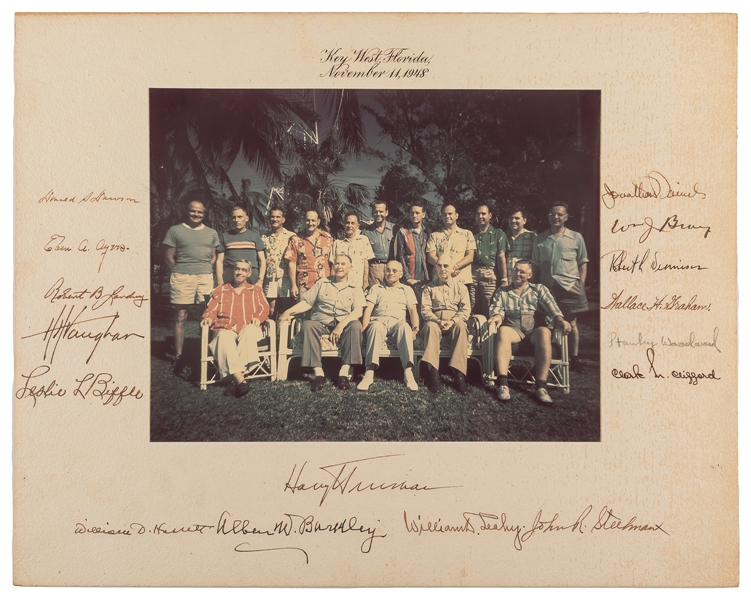 Key West, Florida,
November 11, 1948
Donald S. Dawson
Eben A. Ayers.
Robert B. Landry
HHVaughan
Leslie L Biffle
Jonathan Daniels
Wm J Bray
Robert Dennison
Wallace H. Graham.
Stanley Woodward
Clark M. Clifford
Harry Truman
William D. Hassett
Alben W. Barkley
William D. Leahy.
John R. Steelman